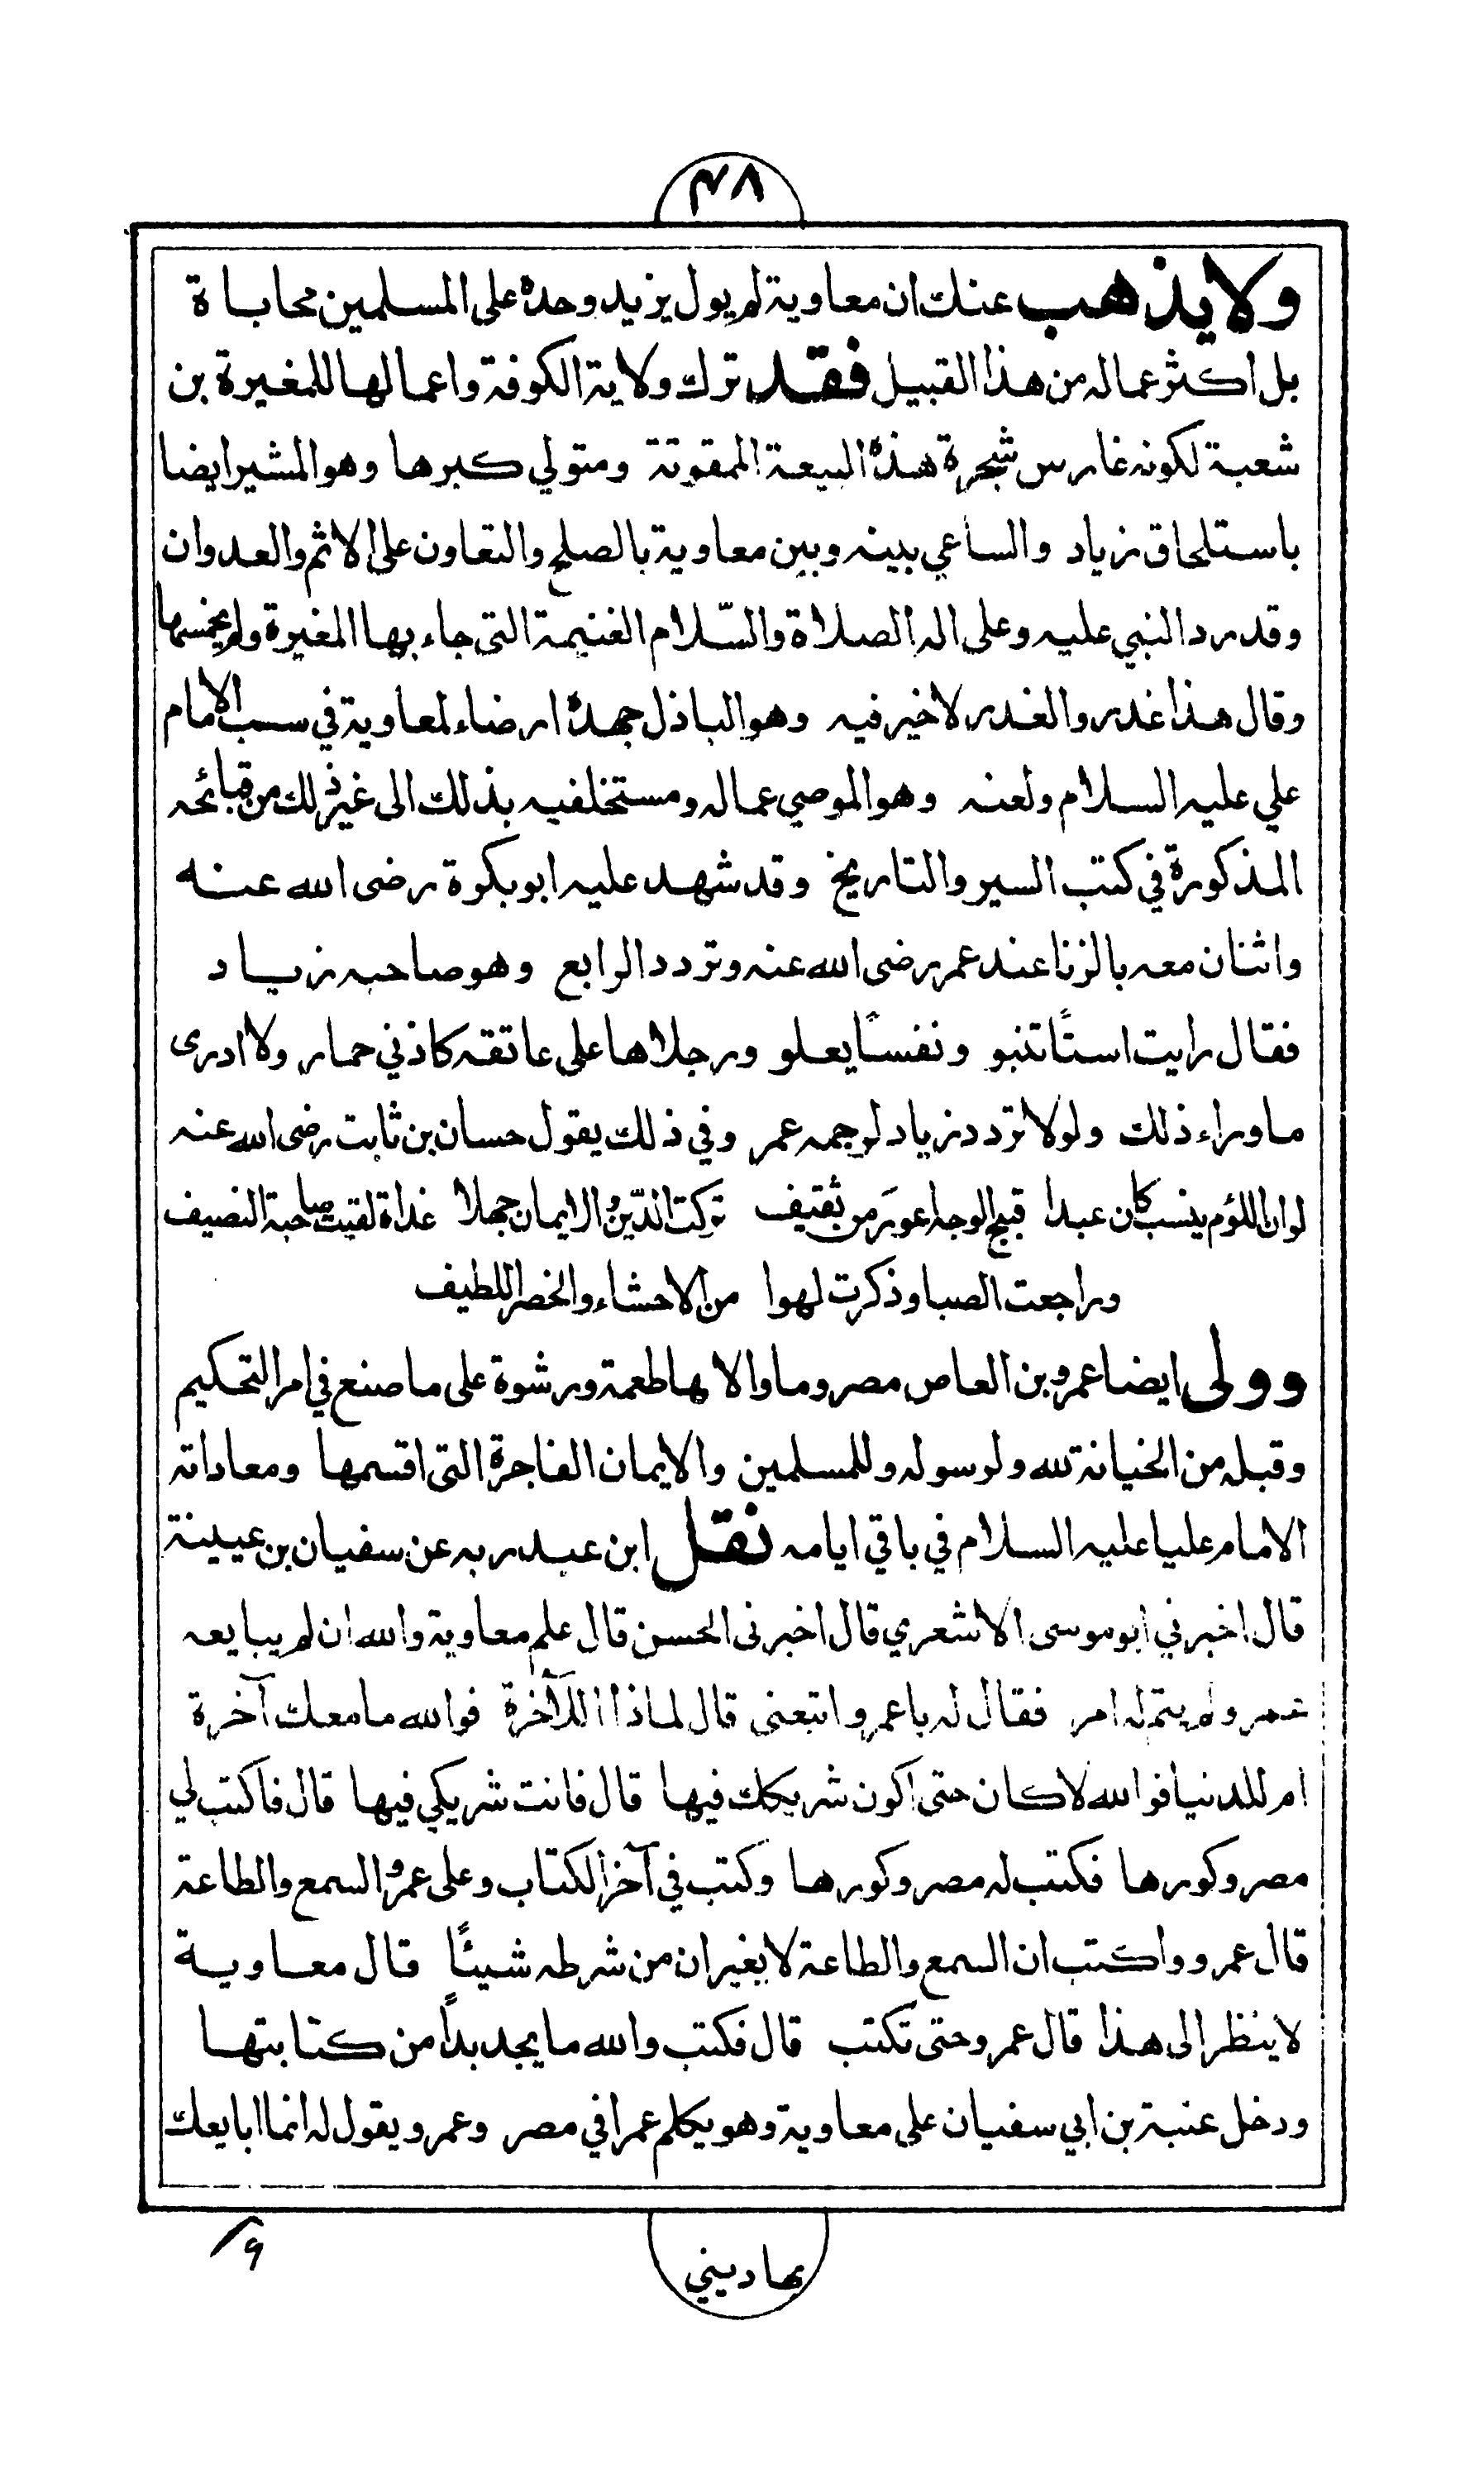 ٤٨
ولا يذهب عنك ان معاوية لم يول يزيد وحده على المسلمين محاباة
بل اكثر عماله من هذا القبيل فقد ترك ولاية الكوفة واعمالها للمغيرة بن
شعبة لكونه غارس شجرة هذه البيعة الممقوتة ومتولي كبرها وهو المشير ايضا
باستلحاق زياد والساعي بينه وبين معاوية بالصلح والتعاون على الاثم والعدوان
وقد رد النبي عليه وعلى اله الصلاة والسّلام الغنيمة التى جاء بها المغيرة ولم يخمسها
وقال هذا غدر والغدر لا خير فيه وهو الباذل جهده ارضاء لمعاوية في سب الامام
علي عليه السلام ولعنه وهو الموصي عماله ومستخلفيه بذلك الى غير ذلك من قبائحه
المذكورة في كتب السير والتاريخ وقد شهد عليه ابو بكرة رضى الله عنه
واثنان معه بالزنا عند عمر رضى الله عنه وتردد الرابع وهو صاحبه زياد
فقال رايت استًا تنبو ونفسًا يعلو ورجلاها على عاتقه كاذني حمار ولا ادرى
ما وراء ذلك ولولا تردد زياد لرجمه عمر وفي ذلك يقول حسان بن ثابت رضى الله عنه
لو ان اللؤم ينسب كان عبدا قبيح الوجه اعورَ من ثقيف تركت الدّين والايمان جهلا غداة لقيت صاحبة النصيف
وراجعت الصبا وذكرت لهوا من الاحشاء والخصر اللطيف
وولى ايضا عمرو بن العاص مصر وما والاها طعمة ورشوة على ما صنع في امر التحكيم
وقبله من الخيانة لله ولرسوله وللمسلمين والايمان الفاجرة التى اقسمها ومعاداته
الامام عليا عليه السلام في باقي ايامه نقل ابن عبد ربه عن سفيان بن عيينة
قال اخبرني ابو موسى الاشعري قال اخبرنى الحسن قال علم معاوية والله ان لم يبايعه
عمرو لم يتم له امر فقال له يا عمرو اتبعنى قال لماذا اللآخرة فوالله ما معك آخرة
ام للدنيا فوالله لا كان حتى اكون شريكك فيها قال فانت شريكي فيها قال فاكتب لي
مصر وكورها فكتب له مصر وكورها وكتب في آخر الكتاب وعلى عمرو السمع والطاعة
قال عمرو واكتب ان السمع والطاعة لا يغيران من شرطه شيئًا قال معاوية
لا ينظر الى هذا قال عمرو حتى تكتب قال فكتب والله ما يجد بدًا من كتابتها
ودخل عتبة بن ابي سفيان على معاوية وهو يكلم عمرا في مصر وعمرو يقول له انما ابايعك
بها ديني